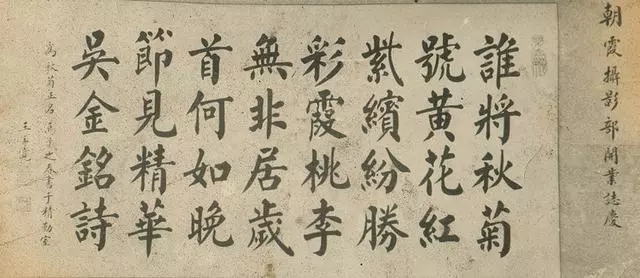 朝霞攝影部開業誌慶
誰將秋菊
號黃花紅
紫繽紛勝
彩霞桃李
無非居歲
首何如晚
節見精華
吳金銘詩
為秋菊正名 之春書于精勤室